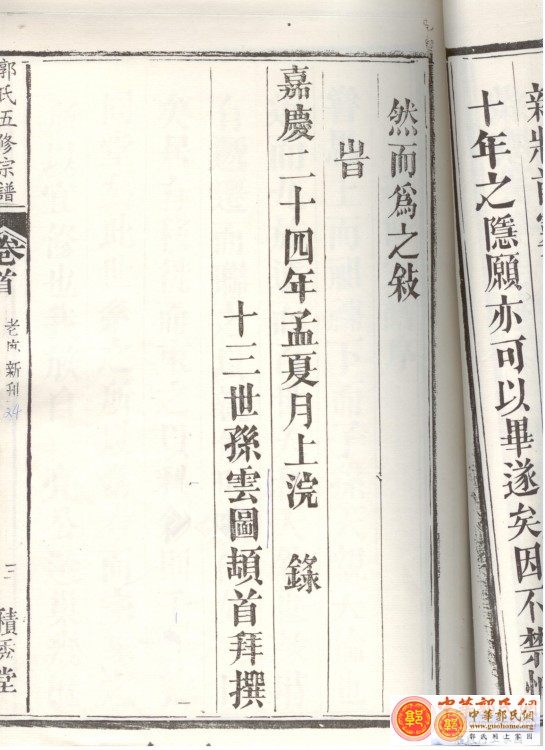 十年之隱願亦可以畢遂矣因不禁
然而爲之敍
旹
嘉慶二十四年孟夏月上浣 錄
十三世孫雲圖頓首拜撰
郭氏五修宗譜
卷首
新刊
三
積 堂
中華郭氏網
中華郭氏網
郭氏網上家園